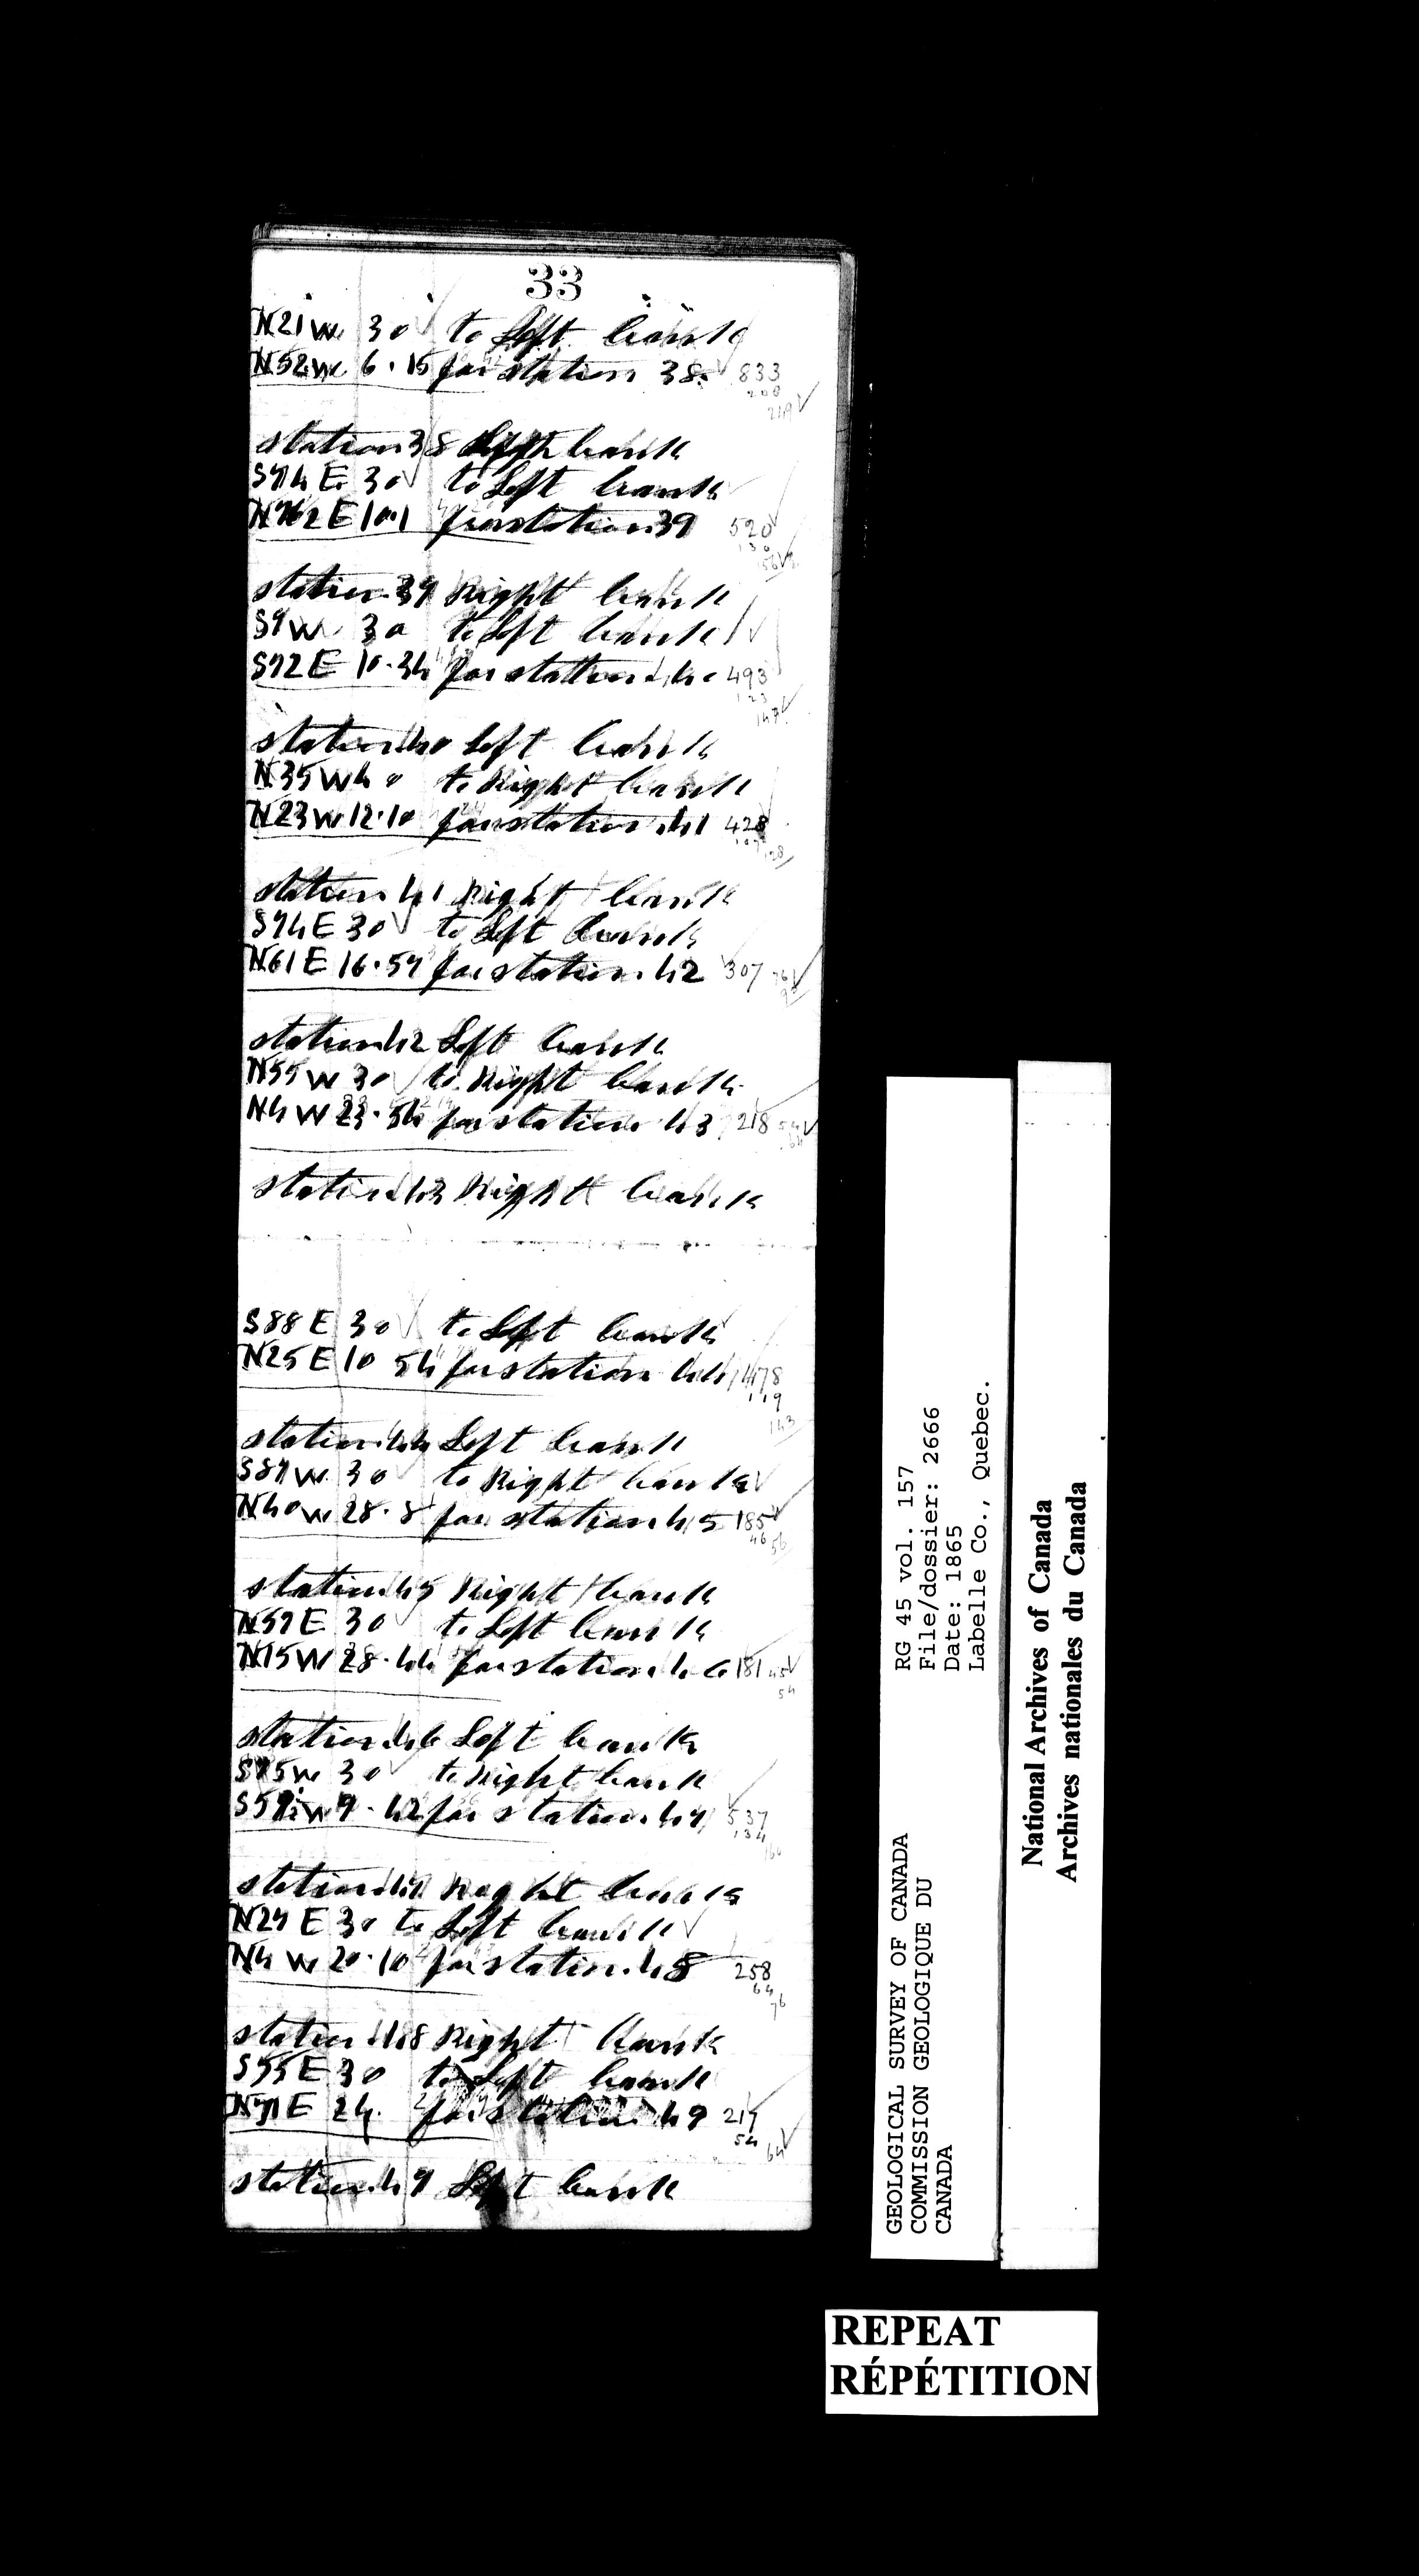 33
N21W 30 to Left bank
N52W 6.15 for station 38. 833
208
219
station 38 bank
S74E 30 to Left bank
E 10.1 for station 39 520
130
station 39 Right bank
S9W 30 to Left bank
S72E 10.34 for station 40 493
123
147
station 40 Left bank
N35W 40 to Right bank
N23W 12.10 for station 41 428
107 128
station 41 Right bank
S74E 30 to Left bank
N61E 16.57 for station 42 307 76
station 42 Left bank
N55W 30 to Right bank
N4W 23.54 for station 43 218 54
64
station 43 Right bank
S88E 30 to Left bank
N25E 10 54 for station 44 478
119
143
station 44 Left bank
S87W 30 to Right bank
N40W 28.8 for station 45 185
46 56
station 45 Right bank
N57E 30 to Left bank
N15W 28.44 for station 46 181 45
54
station 46 Left bank
S75W 30 to Right bank
W 9.42 for station 47 537
134
160
station 47 Right bank
N27E 30 to Left bank
N4W 20.10 for station 48 258
64
76
station 48 Right bank
S55E 30 to Left bank
N71E 24. for station 49 217
54
64
station 49 Left bank
GEOLOGICAL SURVEY OF CANADA
COMMISSION GEOLOGIQUE DU
CANADA
RG 45 vol. 157
File/dossier: 2666
Date: 1865
Labelle Co., Quebec.
National Archives of Canada
Archives nationales du Canada
REPEAT
RÉPÉTITION